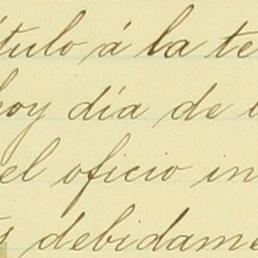 ítulo á la te
hoy día de l
el oficio in
s debidame